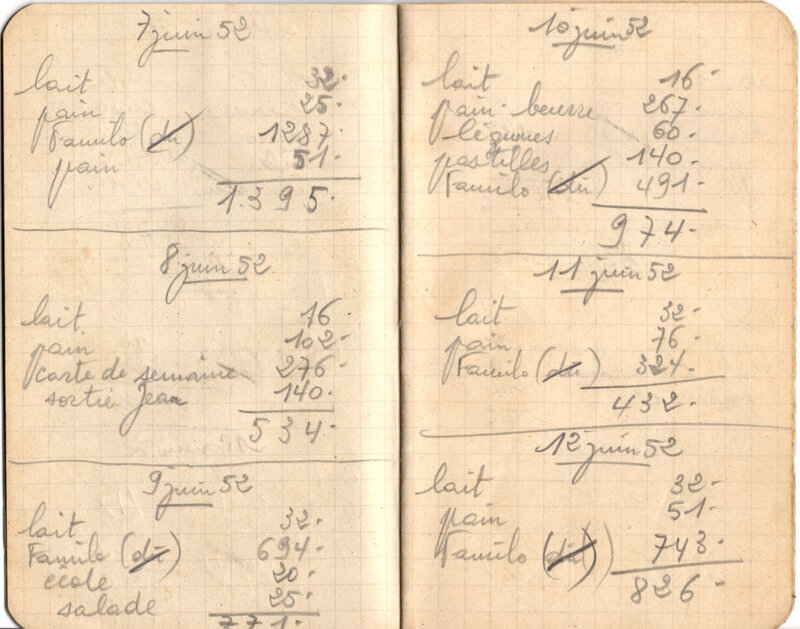 7 juin 52
lait 32.
pain 25.
Familo (dû) 1287.
pain 51.
1.395.
8 juin 52
lait 16.
pain 102.
carte de semaine 276.
sortie Jean 140.
534.
9 juin 52
lait 32.
Familo (dû) 694.
école 20.
salade 25.
771.
10 juin 52
lait 16.
pain - beurre 267.
légumes 60.
pastilles 140.
Familo (dû) 491.
974.
11 juin 52
lait 32.
pain 76.
Familo (dû) 324.
432.
12 juin 52
lait 32.
pain 51.
Familo (dû) 743.
826.